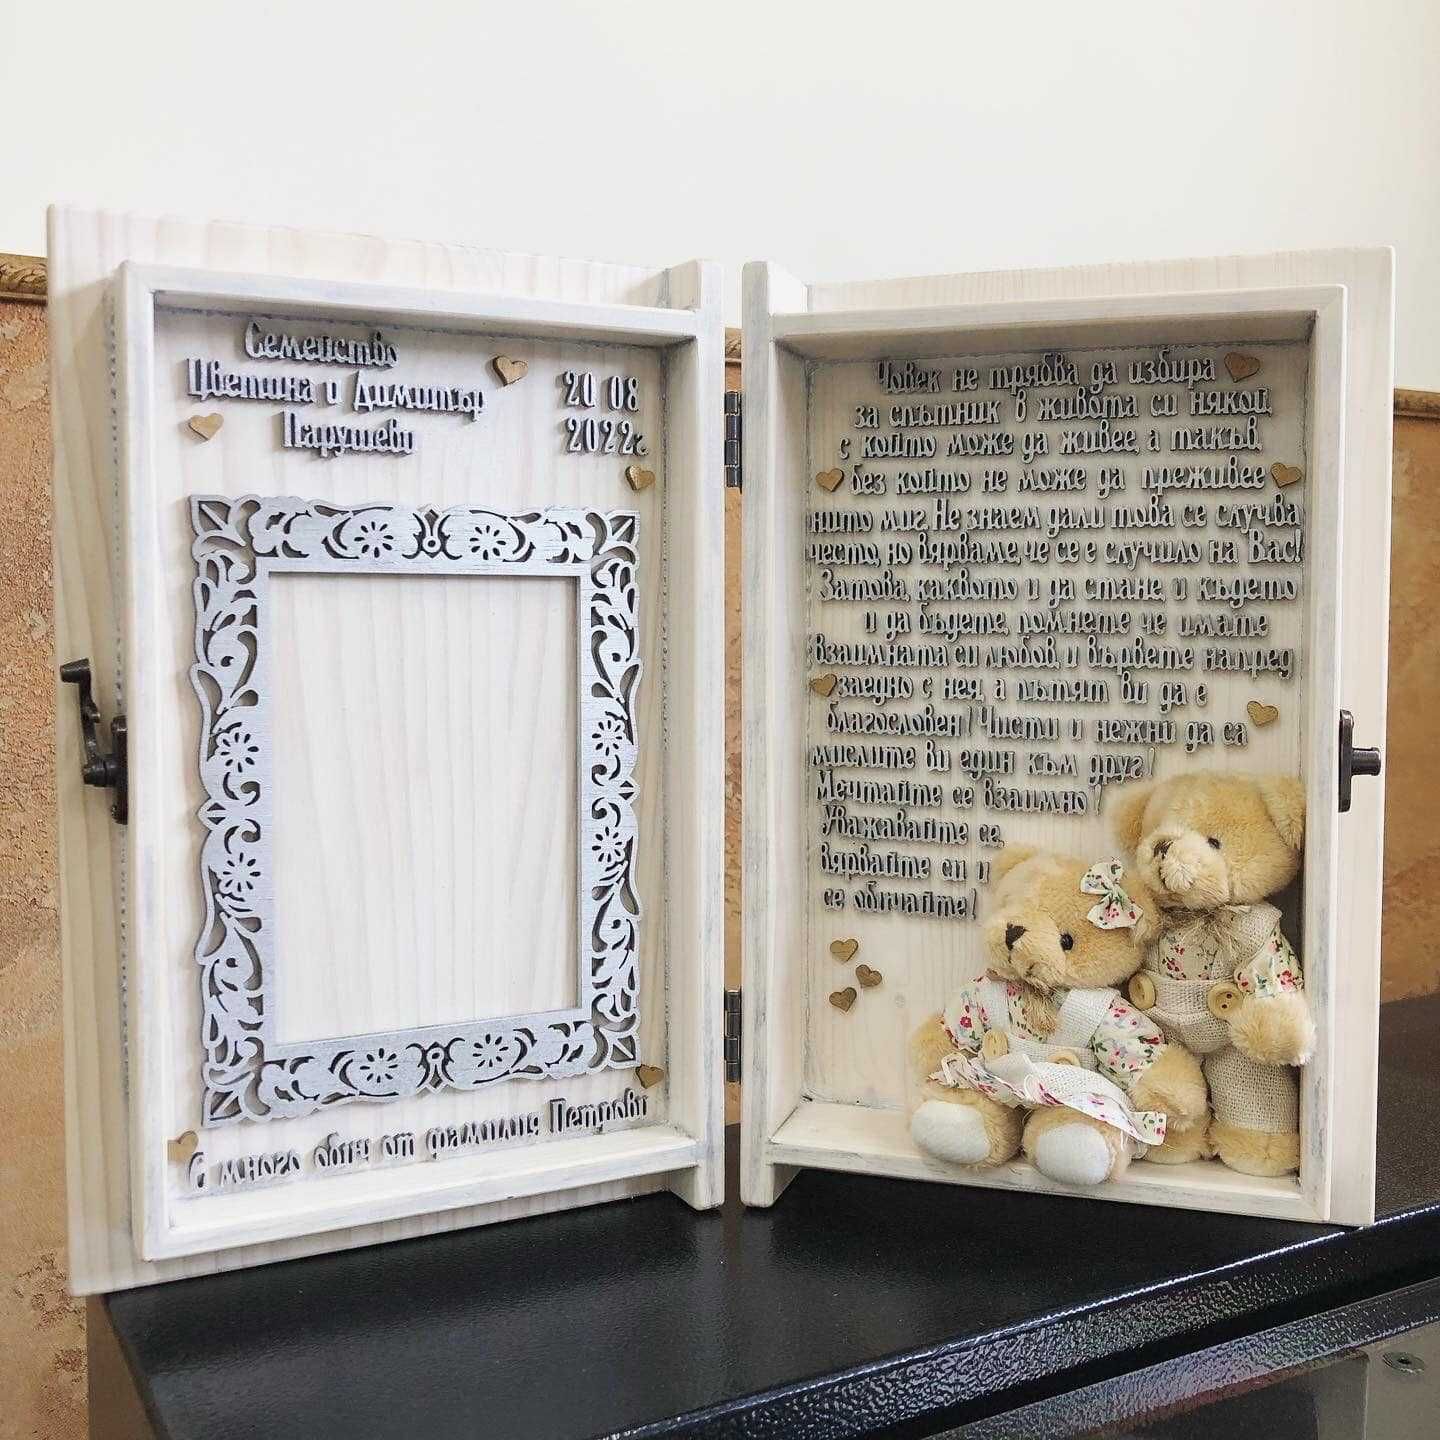 Семейство
Цветина и Димитър
Парушеви
20 08
2022г
С много обич от фамилия Петрови
Човек не трябва да избира
за спътник в живота си някой,
с който може да живее, а такъв,
без който не може да преживее
нито миг. Не знаем дали това се случва
често, но вярваме, че се е случило на Вас!
Затова, каквото и да стане, и където
и да бъдете, помнете че имате
взаимната си любов, и вървете напред
заедно с нея, а пътят ви да е
благословен! Чисти и нежни да са
мислите ви един към друг!
Мечтайте се взаимно!
Уважавайте се,
вярвайте си и
се обичайте!